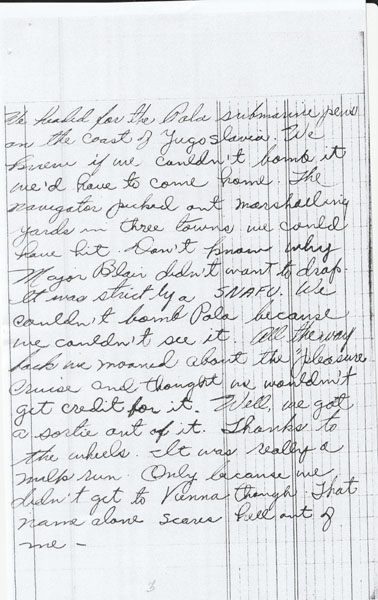 We headed for the Pola submarine pens
on the coast of Yugoslavia. We
knew if we couldn't bomb it
we'd have to come home. The
navigator picked out marshalling
yards in three towns we could
have hit. Don't know why
Major Blair didn't want to drop.
It was strictly a SNAFU. We
couldn't bomb Pola because
we couldn't see it. All the way
back we moaned about the "Pleasure
Cruise and thought we wouldn't
get credit for it. Well, we got
a sortie out of it. Thanks to
the wheels. It was really a
milk run. Only because we
didn't get to Vienna though. That
name alone scares hell out of
me —
3